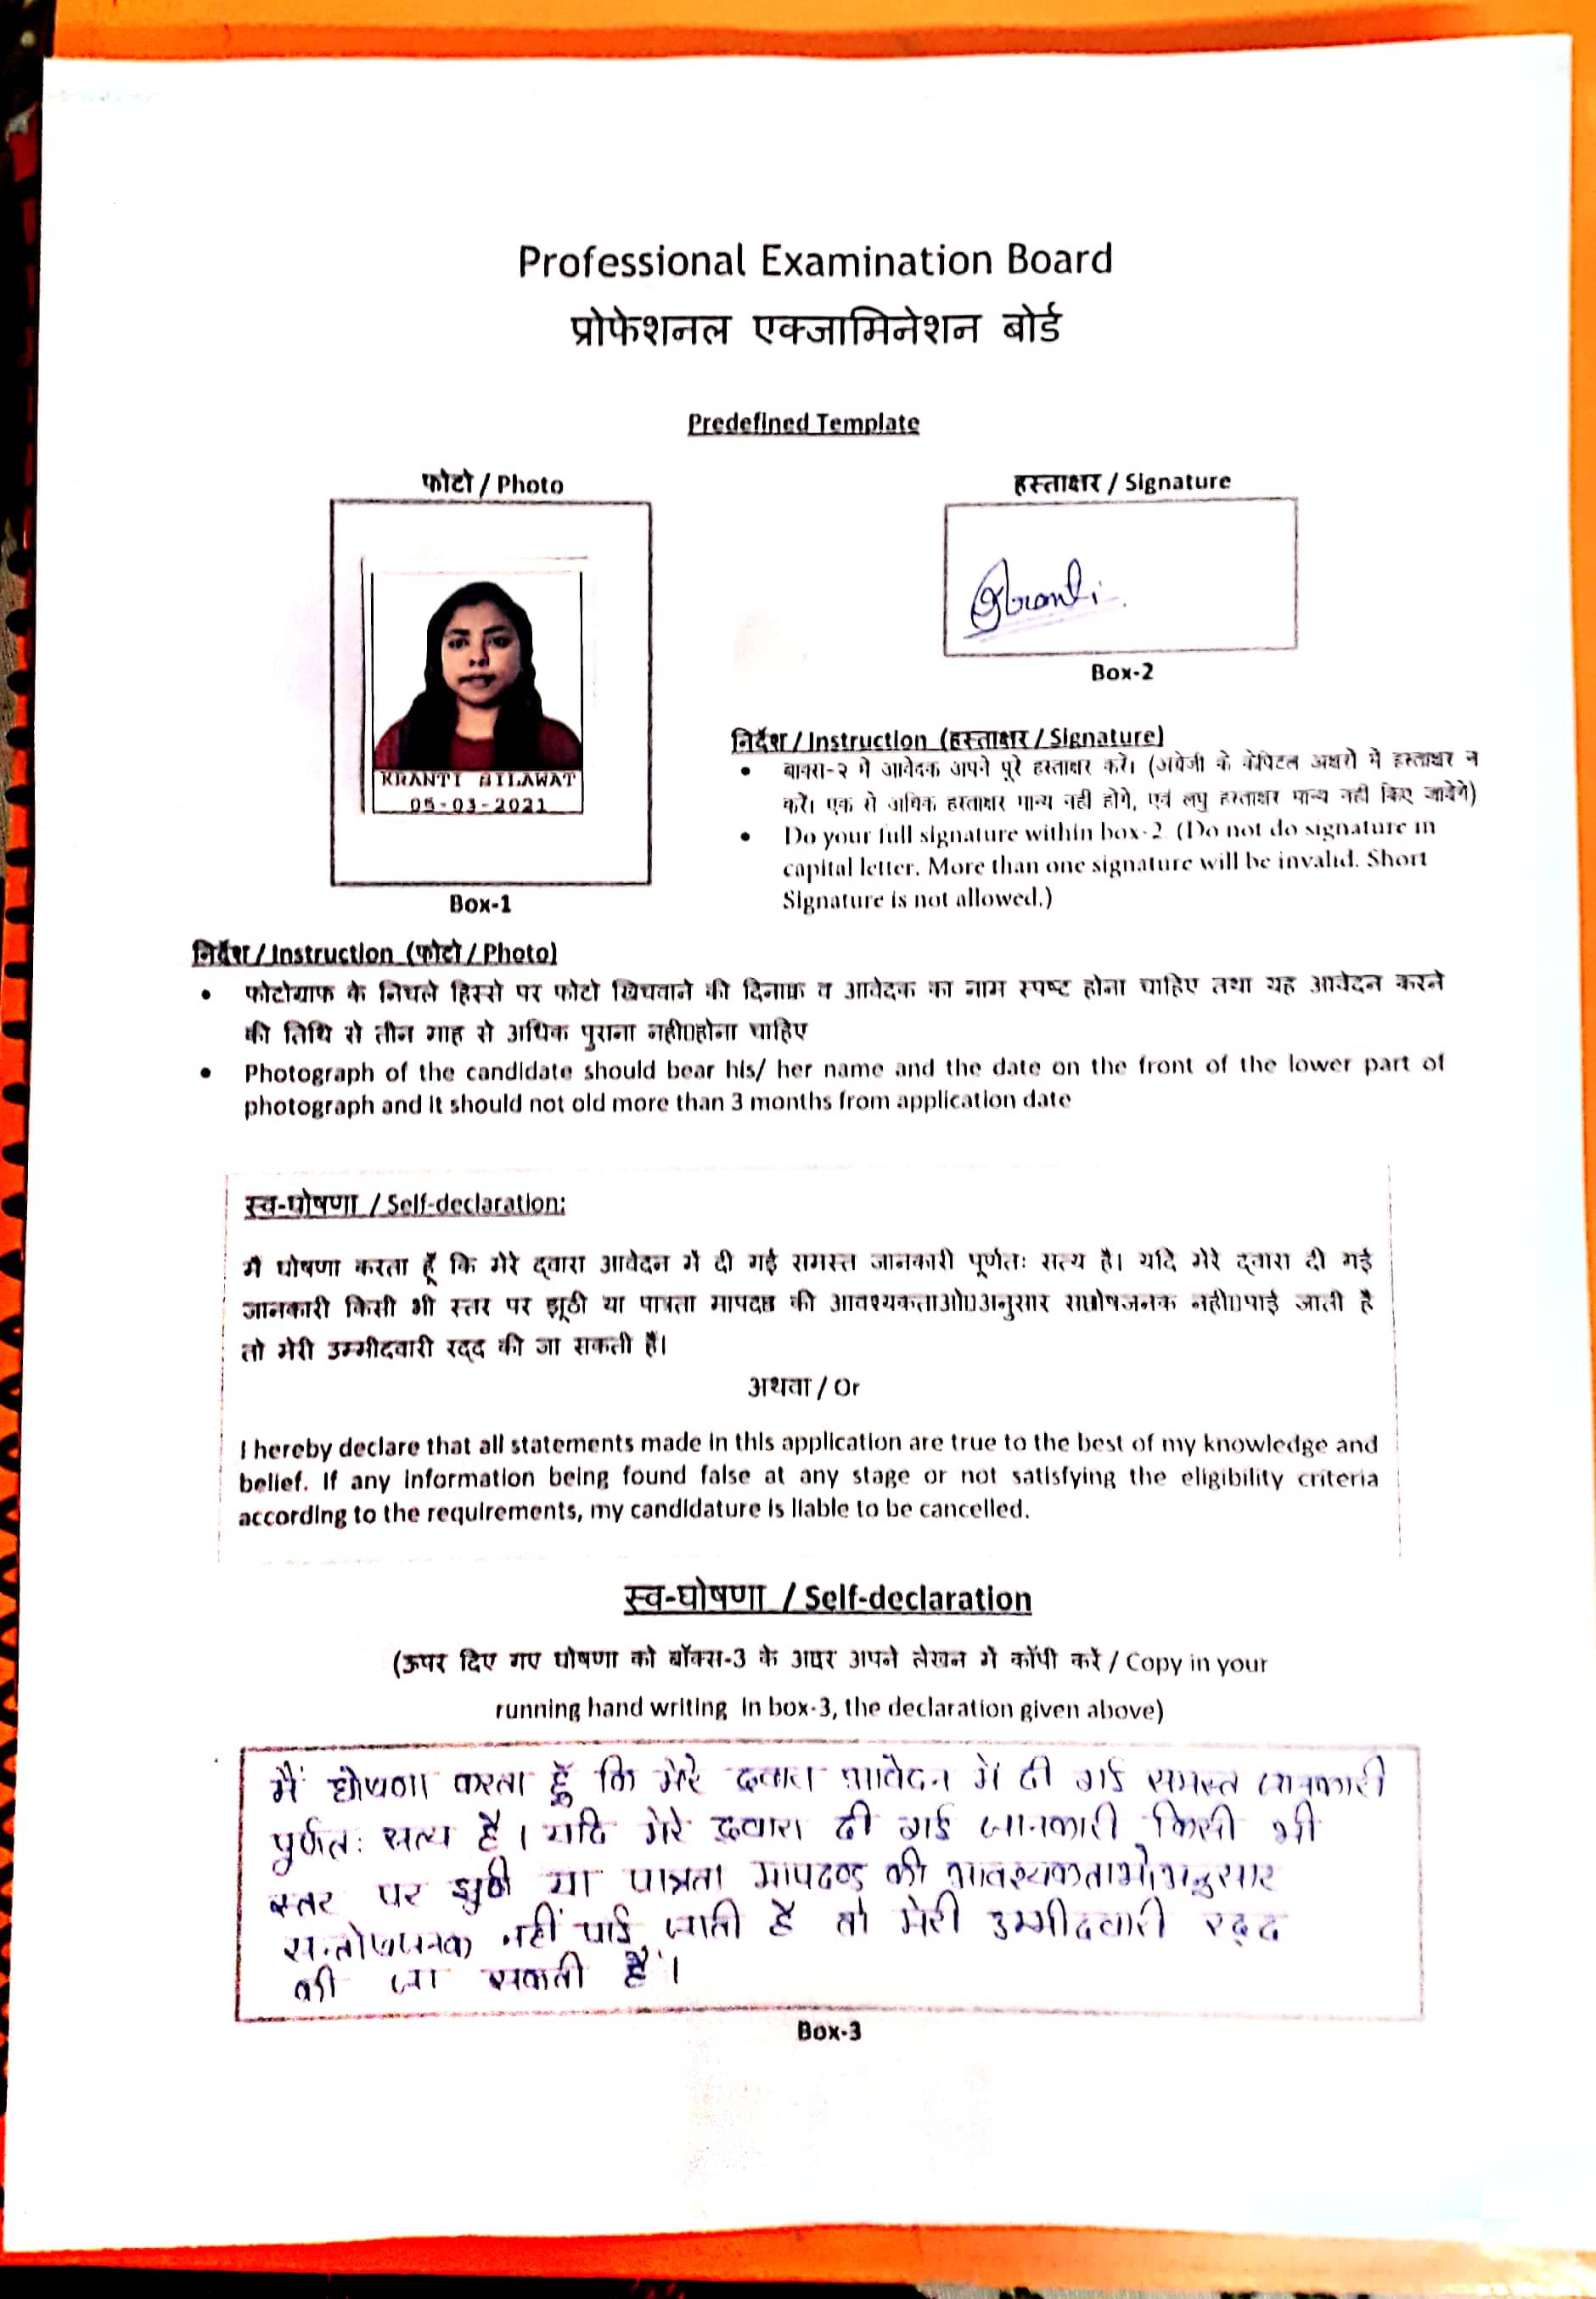 Professional Examination Board
प्रोफेशनल एक्जामिनेशन बोर्ड
Predefined Template
फोटो / Photo
हस्ताक्षर / Signature
Kranti
KRANTI BILAWAT
05-03-2021
Box-1
Box-2
निर्देश / Instruction (हस्ताक्षर / Signature)
• बाक्स-२ मे आवेदक अपने पूरे हस्ताक्षर करें। (अंग्रेजी के केपिटल अक्षरो मे हस्ताक्षर न
करें। एक से अधिक हस्ताक्षर मान्य नही होंगे, एवं लघु हस्ताक्षर मान्य नही किए जावेगे)
• Do your full signature within box-2. (Do not do signature in
capital letter. More than one signature will be invalid. Short
Signature is not allowed.)
निर्देश / Instruction (फोटो / Photo)
• फोटोग्राफ के निचले हिस्से पर फोटो खिचवाने की दिनाक व आवेदक का नाम स्पष्ट होना चाहिए तथा यह आवेदन करने
की तिथि से तीन माह से अधिक पुराना नही होना चाहिए
• Photograph of the candidate should bear his/ her name and the date on the front of the lower part of
photograph and it should not old more than 3 months from application date
स्व-घोषणा / Self-declaration:
मै घोषणा करता हूँ कि मेरे द्वारा आवेदन में दी गई समस्त जानकारी पूर्णतः सत्य है। यदि मेरे द्वारा दी गई
जानकारी किसी भी स्तर पर झूठी या पात्रता मापदण्ड की आवश्यकताओ अनुसार नही पाई जाती है
तो मेरी उम्मीदवारी रद्द की जा सकती हैं।
अथवा / Or
I hereby declare that all statements made in this application are true to the best of my knowledge and
belief. If any information being found false at any stage or not satisfying the eligibility criteria
according to the requirements, my candidature is liable to be cancelled.
स्व-घोषणा / Self-declaration
(ऊपर दिए गए घोषणा को बॉक्स-3 के अपने लेखन में कॉपी करें / Copy in your
running hand writing in box-3, the declaration given above)
मैं घोषणा करता हूँ कि मेरे द्वारा आवेदन में दी गई समस्त जानकारी
पूर्णतः सत्य है। यदि मेरे द्वारा दी गई जानकारी किसी भी
स्तर पर झुठी या पात्रता मापदण्ड की आवश्यकताओं अनुसार
सन्तोषजनक नहीं पाई जाती है तो मेरी उम्मीदवारी रद्द
की जा सकती हैं।
Box-3